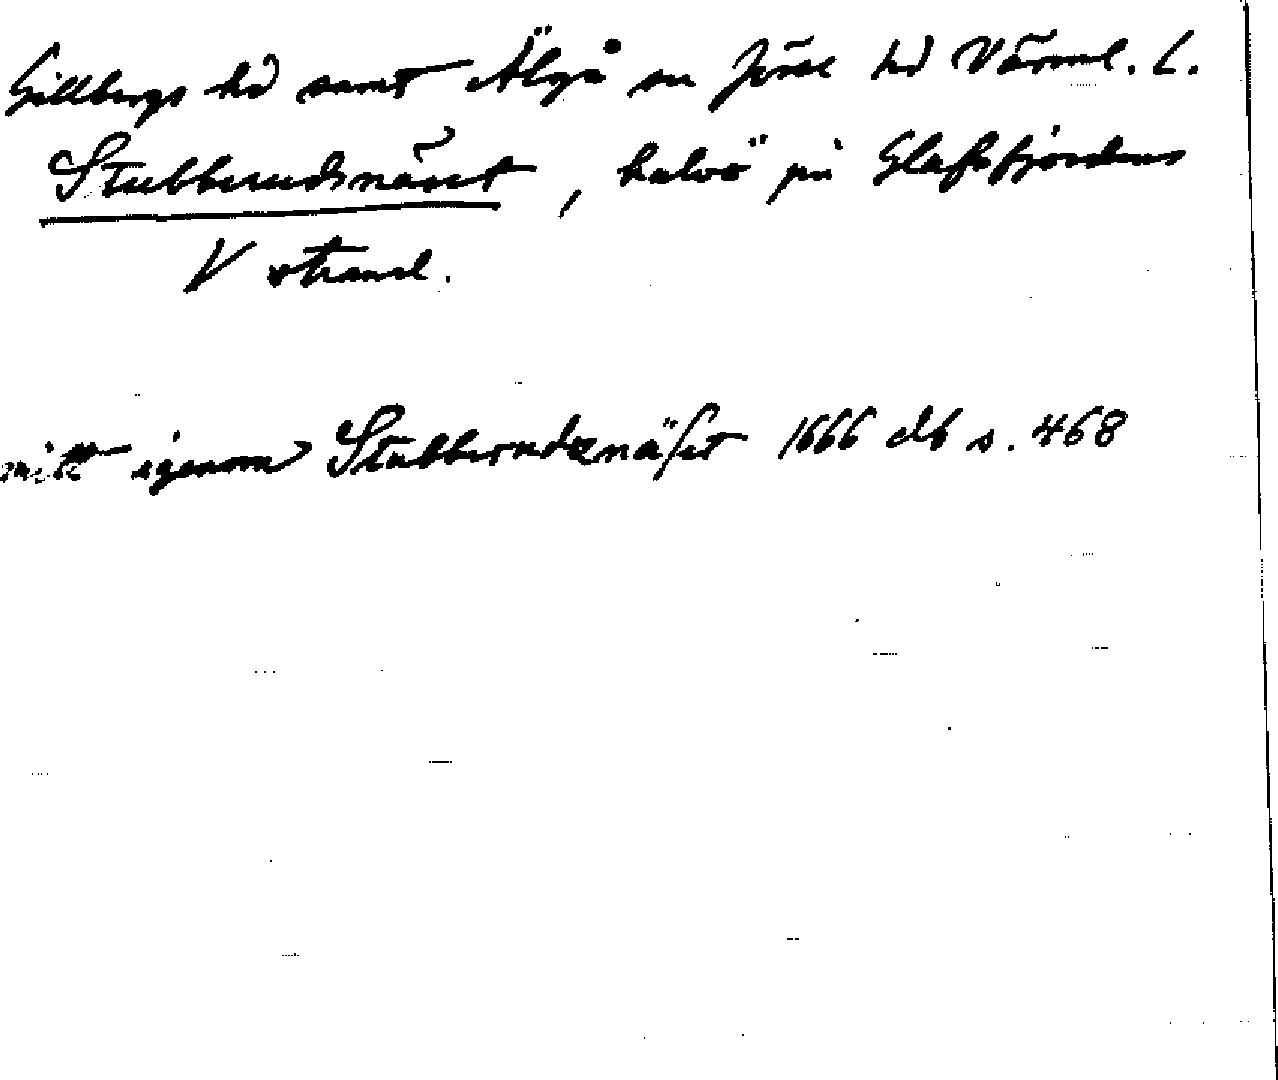 Gillbergs hd samt Älgå sn Jösse hd Värml. L.
Stubberudsnäset, halvö på Glafsfjordens
V strand.
mitt igenom Stubberudznäset 1666 db s. 468